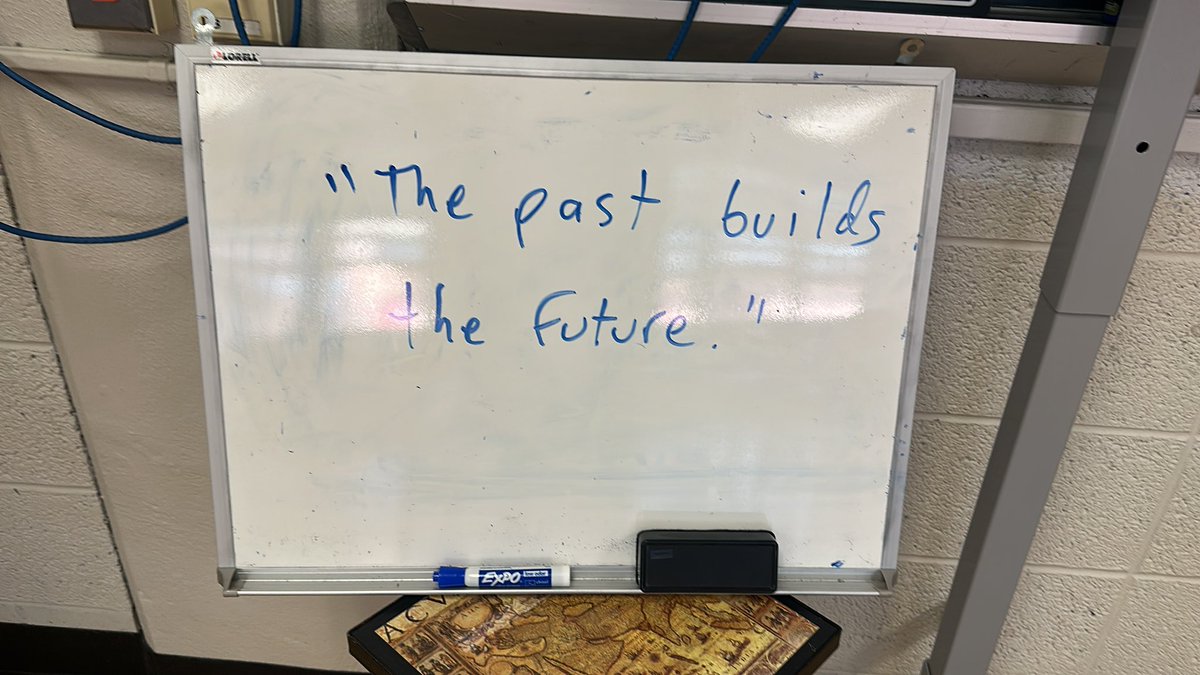 LORELL
"The past builds
the Future."
EXPO
low odor
ACV